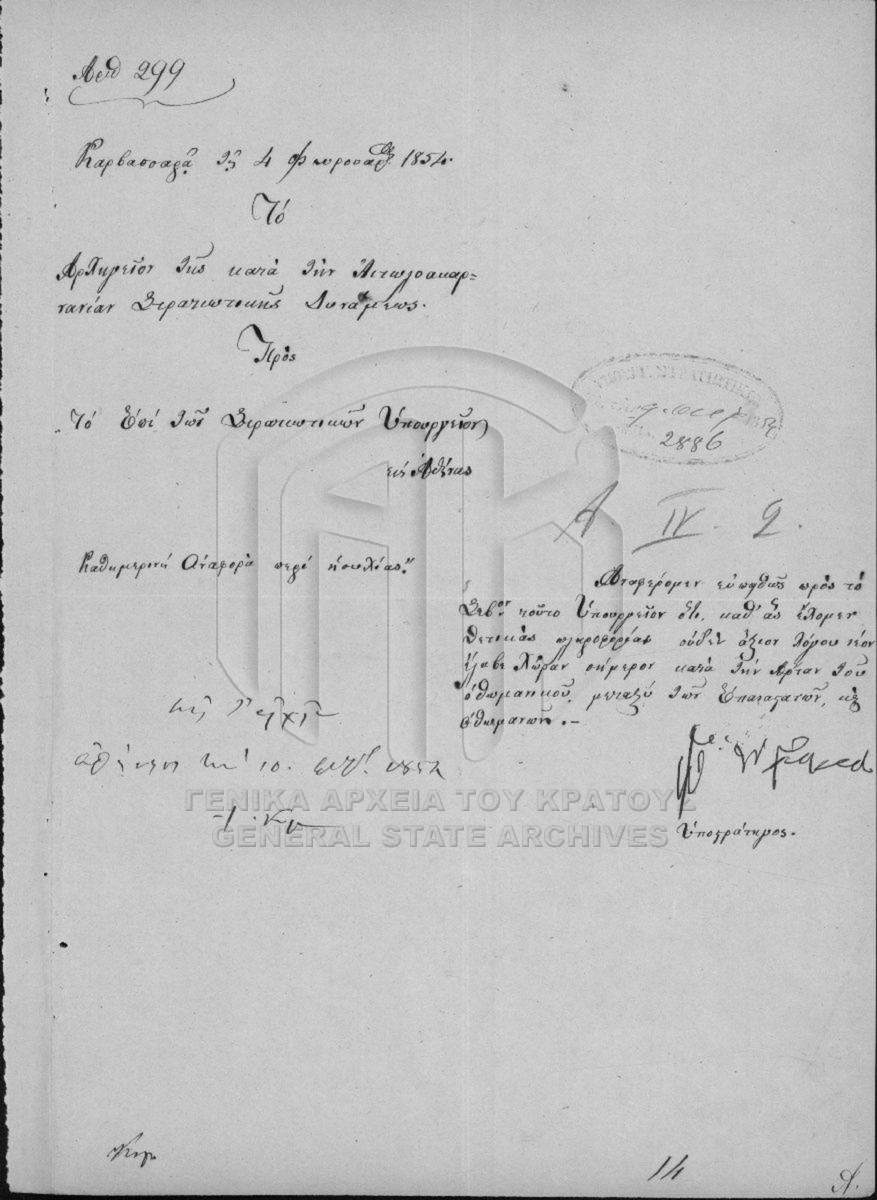 Αριθ 299
Καρβασσαρᾷ τῇ 4 Φευρουαρ. 1854.
Τό
Ἀρχηγεῖον τῆς κατὰ τὴν Αἰτωλοακαρ=
νανίαν Στρατιωτικῆς Δυνάμεως.
Πρὸς
Τὸ Ἐπὶ τῶν Στρατιωτικῶν Ὑπουργεῖον
εἰς Ἀθήνας
2886
Α. IV. 2.
Καθημερινὴ Ἀναφορὰ περὶ ἡσυχίας.
Ἀναφέρομεν εὐπειθῶς πρὸς τὸ
Σεβον τοῦτο Ὑπουργεῖον ὅτι, καθ' ἃς ἔχομεν
θετικὰς πληροφορίας οὐδὲν ἄξιον λόγου νέον
ἔλαβε χώραν σήμερον κατὰ τὴν Ἄρταν τοῦ
ὀθωμανικοῦ, μεταξὺ τῶν Ἐπαναστατῶν, κ
Ὀθωμανῶν.-
10. 1854
Ὑποστράτηγος.
ΓΕΝΙΚΑ ΑΡΧΕΙΑ ΤΟΥ ΚΡΑΤΟΥΣ
GENERAL STATE ARCHIVES
14
Α.